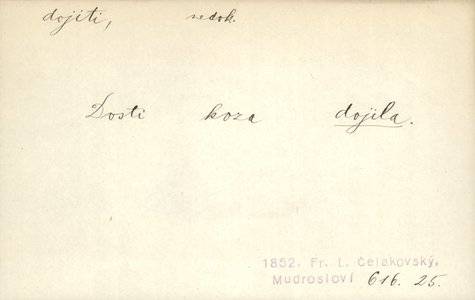 dojiti, nedok.
Dosti koza dojila.
1852. Fr. L. Čelakovský,
Mudrosloví 616. 25.